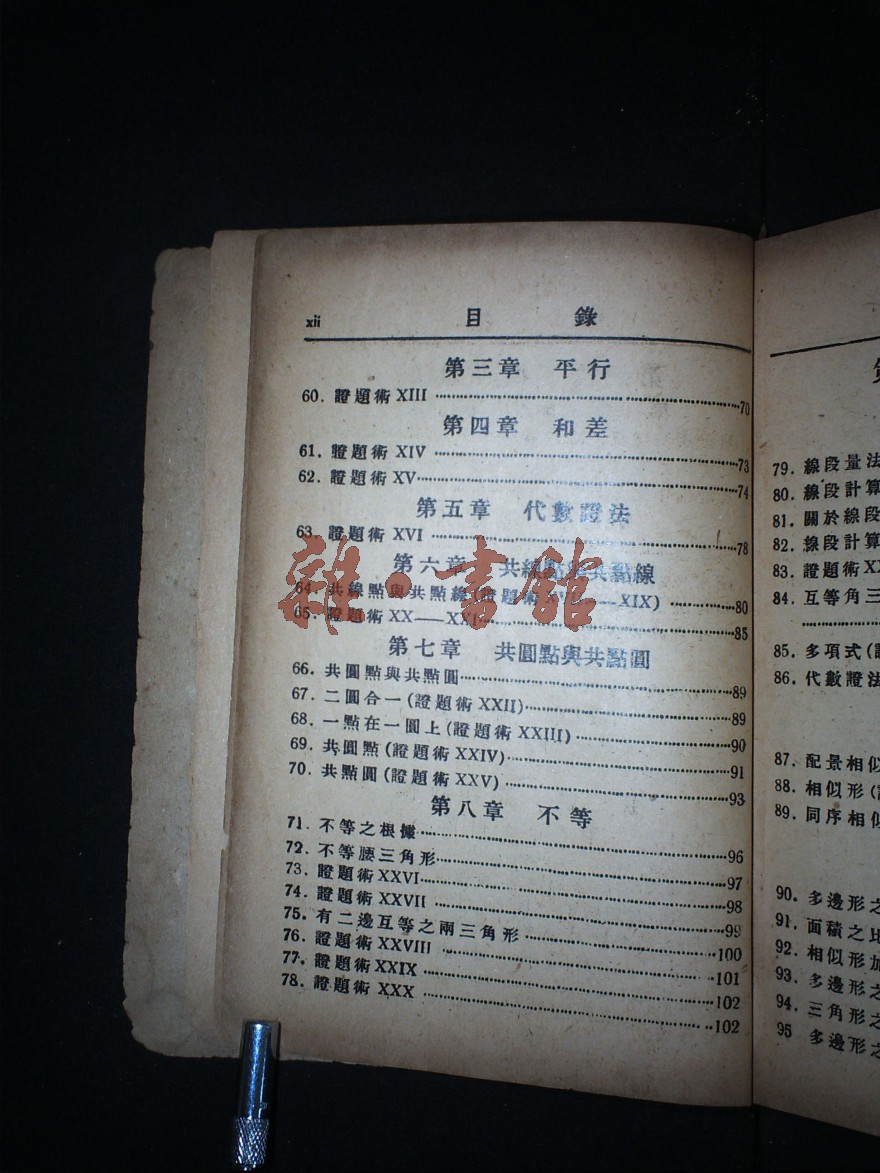 xii 目錄
第三章 平行
60. 證題術 XIII 70
第四章 和差
61. 證題術 XIV 73
62. 證題術 XV 74
第五章 代數證法
63. 證題術 XVI 78
第六章 共線點與共點線
64. 共線點與共點線(證題術 XIX) 80
65. 證題術 XX——XXI 85
第七章 共圓點與共點圓
66. 共圓點與共點圓 89
67. 二圓合一(證題術XXII) 89
68. 一點在一圓上(證題術XXIII) 90
69. 共圓點(證題術XXIV) 91
70. 共點圓(證題術XXV) 93
第八章 不等
71. 不等之根據 96
72. 不等腰三角形 97
73. 證題術XXVI 98
74. 證題術XXVII 99
75. 有二邊互等之兩三角形 100
76. 證題術XXVIII 101
77. 證題術XXIX 102
78. 證題術 XXX 102
雜·書館
79. 線段量法
80. 線段計算
81. 關於線段
82. 線段計算
83. 證題術XX
84. 互等角三
85. 多項式(
86. 代數證法
87. 配景相似
88. 相似形(
89. 同序相似
90. 多邊形之
91. 面積之比
92. 相似形加
93. 多邊形之
94. 三角形之
95 多邊形之